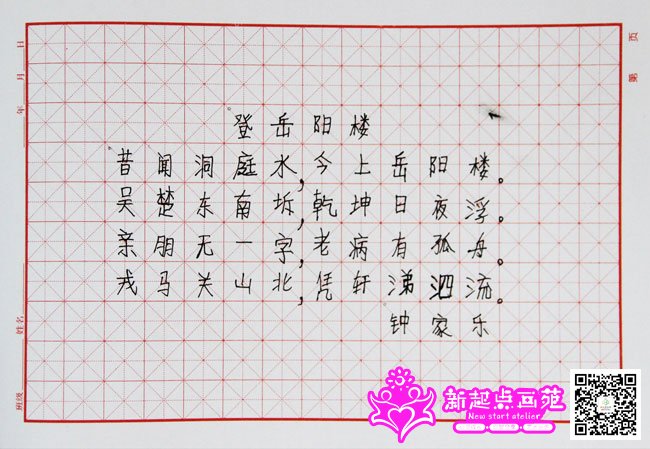 登岳阳楼
昔闻洞庭水,今上岳阳楼。
吴楚东南坼,乾坤日夜浮。
亲朋无一字,老病有孤舟。
戎马关山北,凭轩涕泗流。
钟家乐
年 月 日
第 页
姓名
班级
新起点画苑
New start atelier